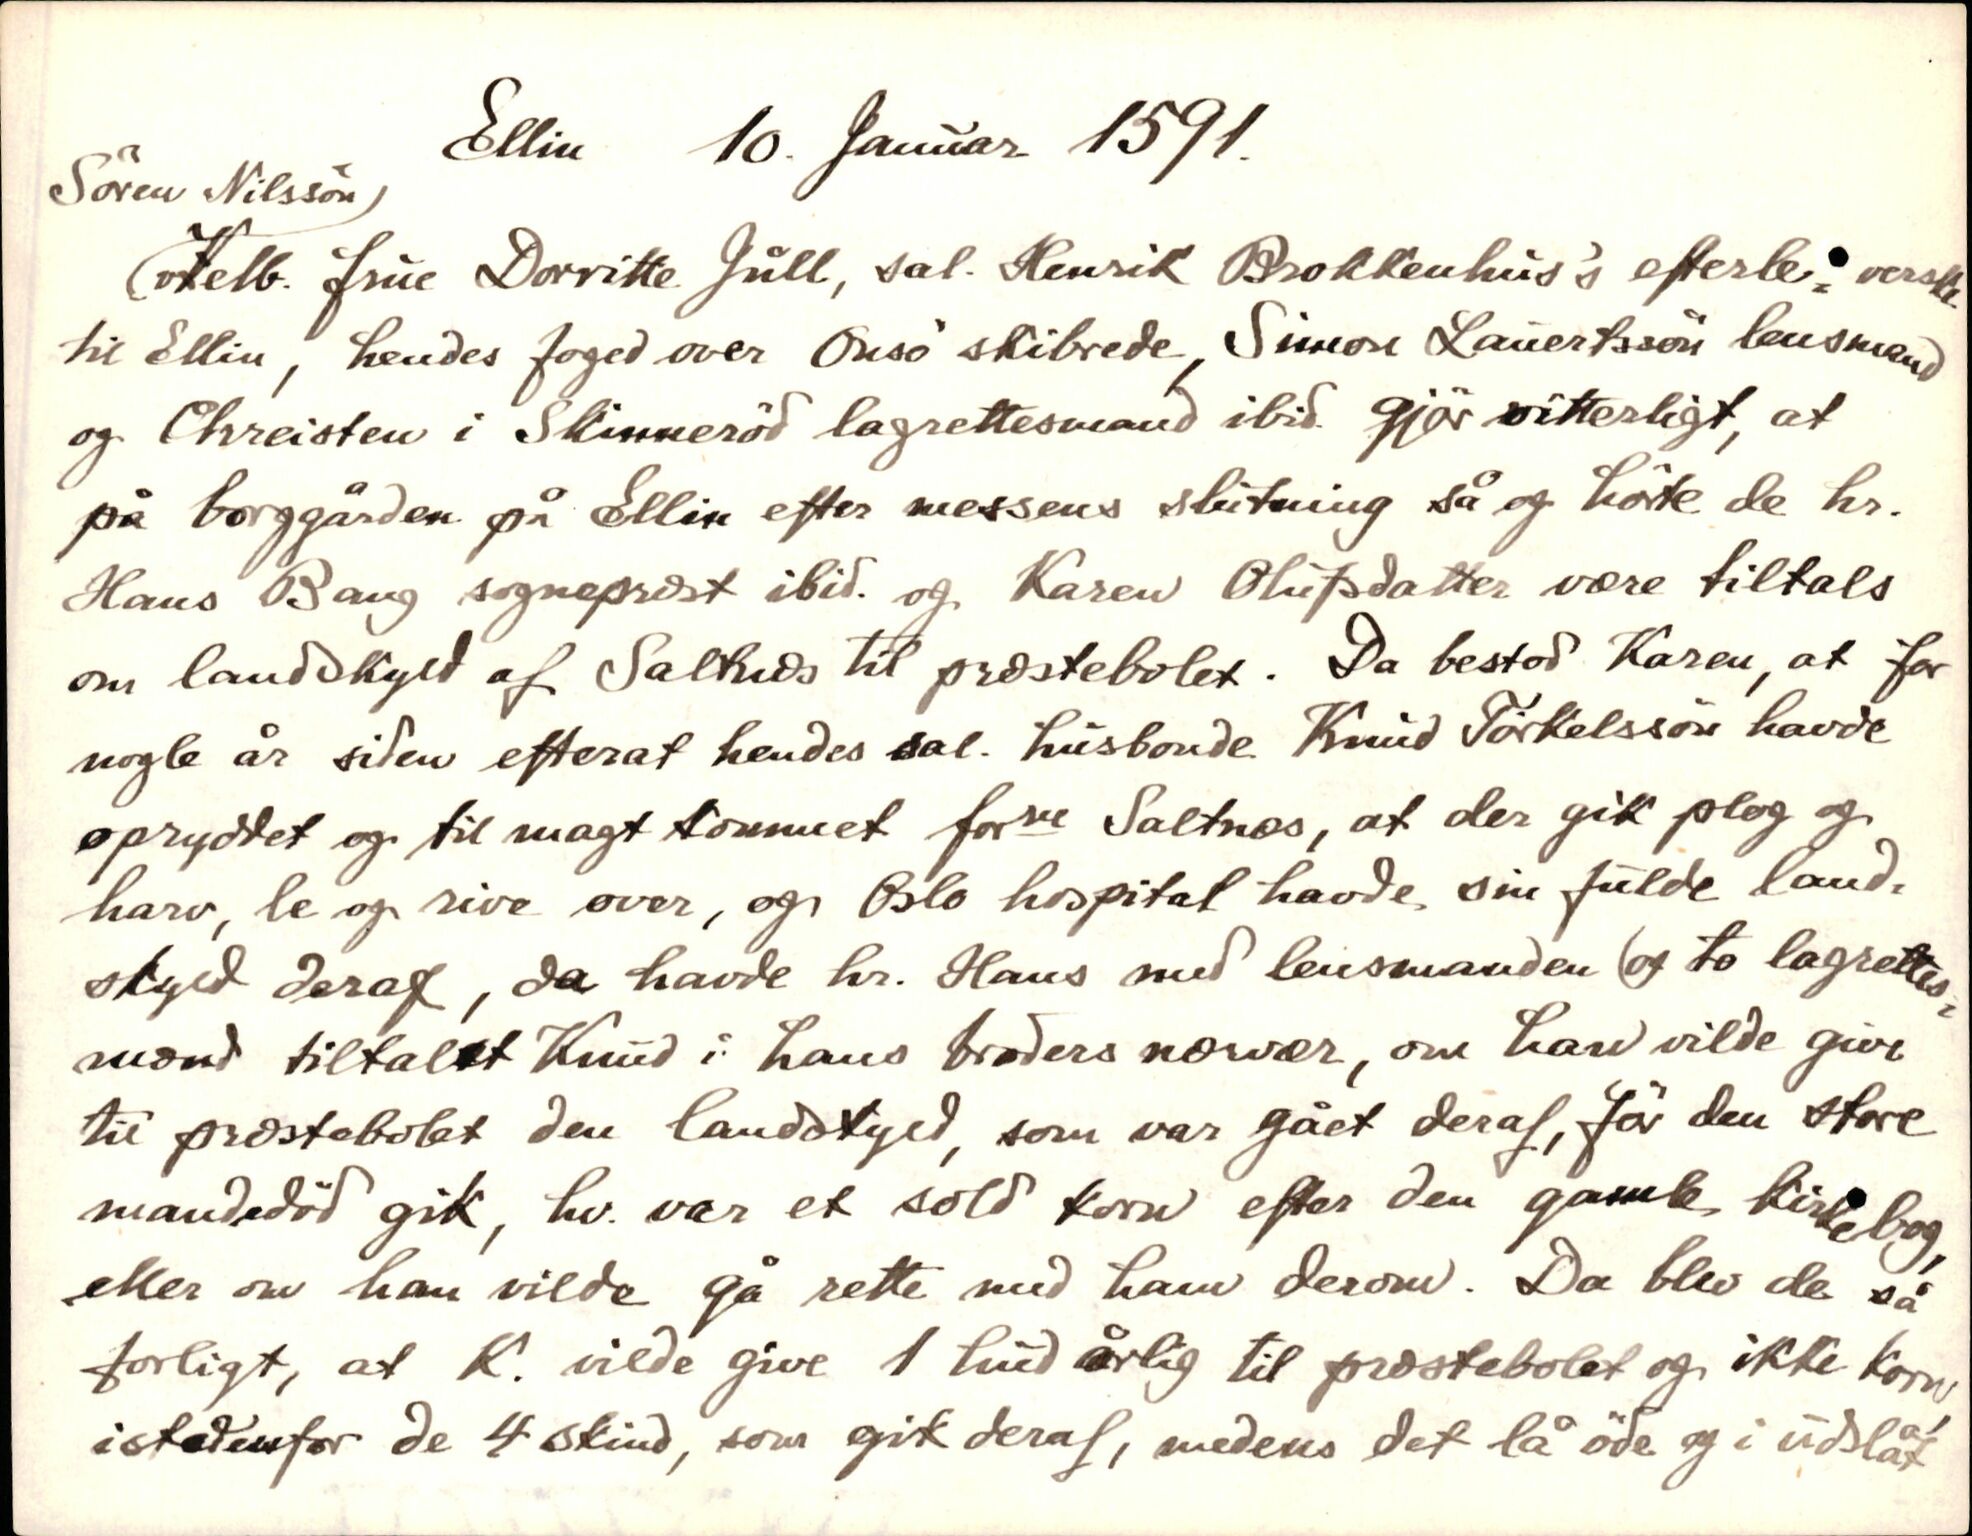 Ellin 10. Januar 1591.
Sören Nilssön,
velb. frue Dorritte Jull, sal. Henrik Brokkenhus's efterle= verske
til Ellin, hendes foged over Onsö skibrede, Simon Lauertssön lensmand
og Chreisten i Skinneröd lagrettesmand ibid. gjör vitterligt, at
på borggården på Ellin efter messens slutning så og hörte de hr.
Hans Bang sogneprest ibid. og Karen Olufsdatter være tiltals
om landskyld af Saltnæs til præstebolet. Da bestod Karen, at for
nogle år siden efterat hendes sal. husbonde Knud Törkelssön havde
opryddet og til magt kommet forne Saltnæs, at der gik plog og
harv, le og rive over, og Oslo hospital havde sin fulde land-
skyld deraf, da havde hr. Hans med lensmanden (og to lagrettes=
mænd tiltalet Knud i hans broders nærvær, om han vilde give
til præstebolet den landskyld, som var gået deraf, för den store
mandedöd gik, hv. var et sold korn efter den gamle kirkebog,
eller om han vilde gå rette med ham derom. Da blev de så
forligt, at K. vilde give 1 hud årlig til præstebolet og ikke korn
istedenfor de 4 skind, som gik deraf, medens det lå öde og i udslåt